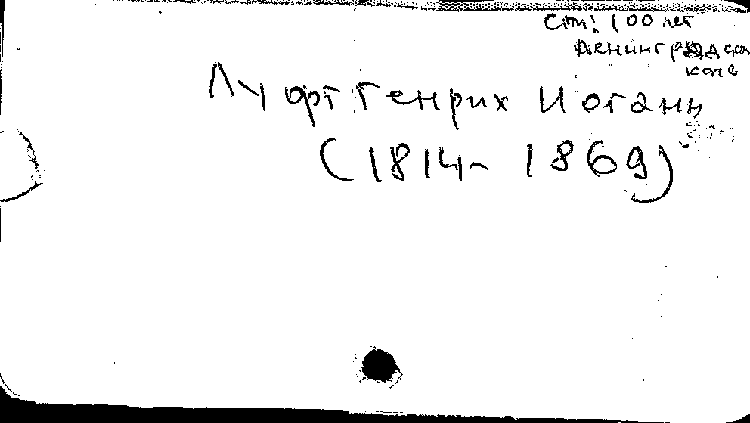 Ст: 100 лет
Ленинградской
конс
Луфт Генрих Иоганн
(1814-1869)